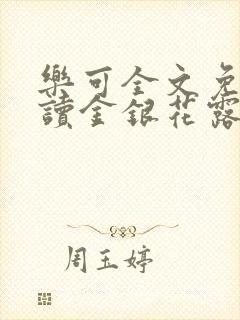 樂可全文免
讀金銀花露
周玉婷